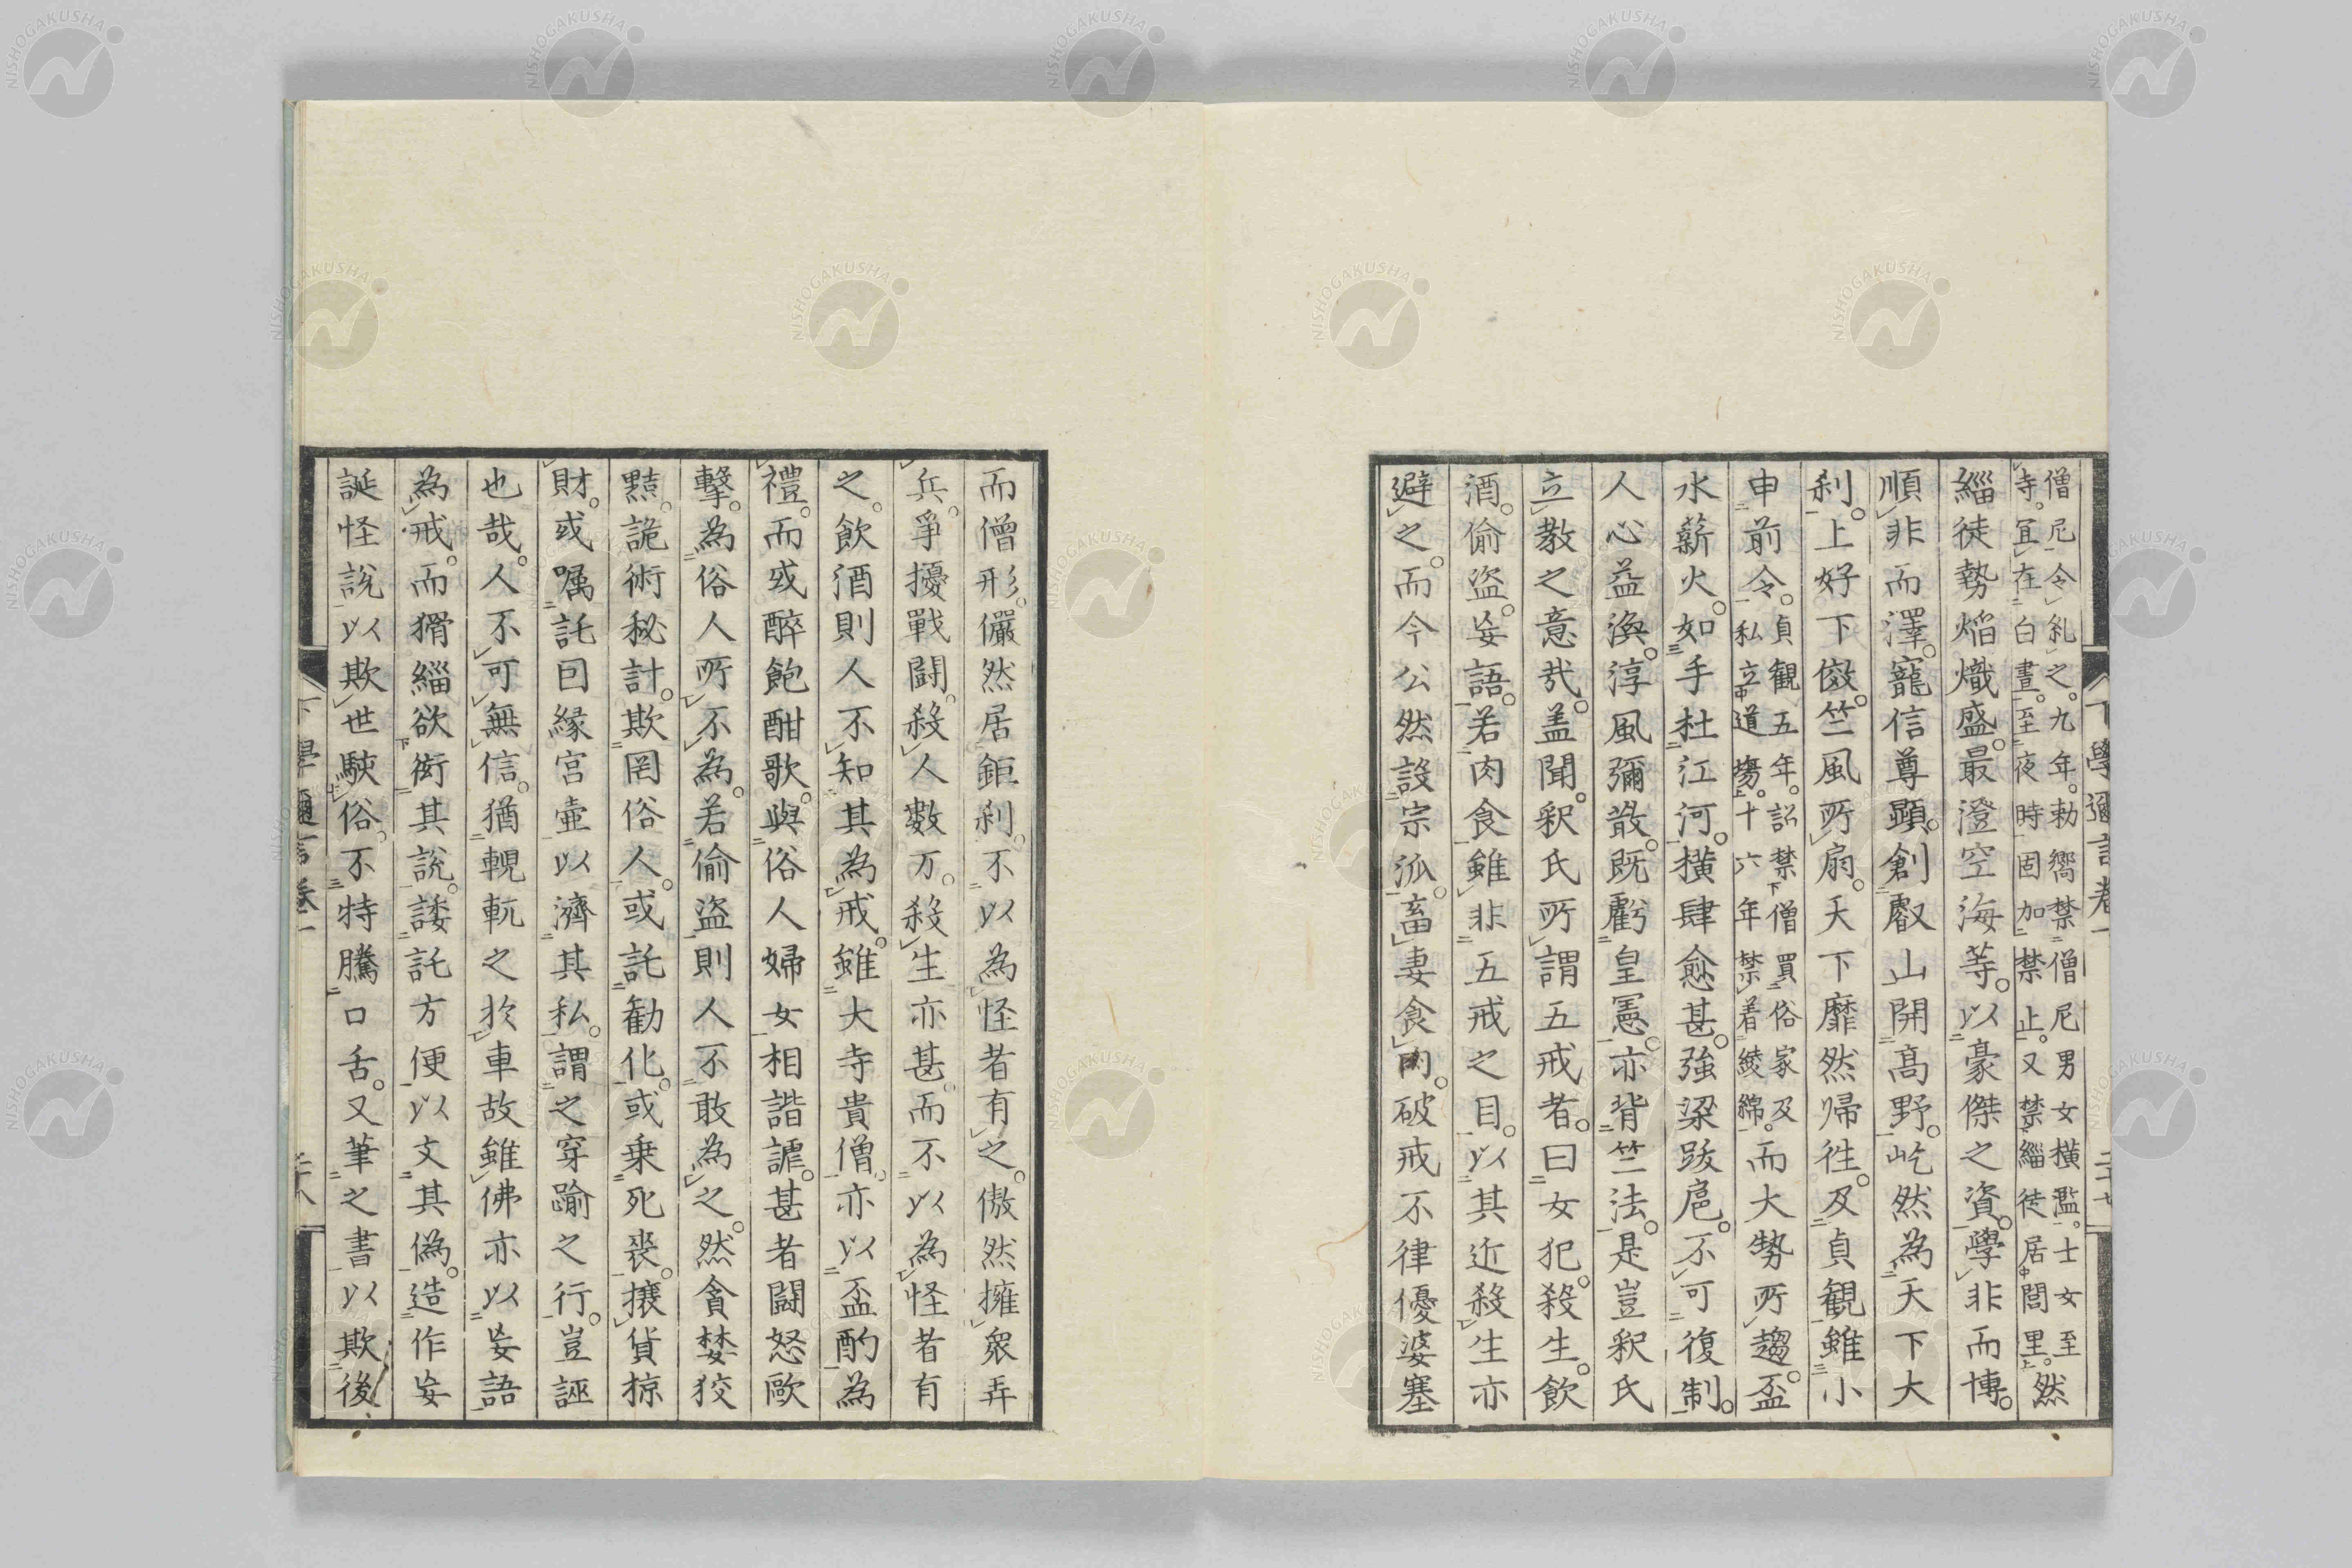 僧尼令糺之。九年。勅嚮禁僧尼男女橫濫。士女至
寺。冝在白晝。至夜時固加禁止。又禁緇徒居閭里。然
緇徒勢焰熾盛。最澄空海等。以豪傑之資。學非而博。
順非而澤。寵信尊顯。創叡山開高野。屹然為天下大
刹。上好下傚。竺風所扇。天下靡然帰徃。及貞観雖小
申前令。貞観五年。詔禁僧買俗家及
私立道塲。十六年禁着綾綿。而大勢所趨。盃
水薪火。如手杜江河。橫肆愈甚。強梁跋扈。不可復制。
人心益渙。淳風彌散。既虧皇憲。亦背竺法。是豈釈氏
立教之意㢤。盖聞。釈氏所謂五戒者。曰女犯。殺生。飲
酒。偷盗。妄語。若肉食。雖非五戒之目。以其近殺生亦
避之。而今公然設宗派。畜妻食肉。破戒不律優婆塞
下學邇言卷一
二十七
而僧形。儼然居鉅刹。不以為怪者有之。傲然擁衆弄
兵。爭擾戰闘。殺人數万。殺生亦甚。而不以為怪者有
之。飲酒則人不知其為戒。雖大寺貴僧。亦以盃酌為
禮。而或醉飽酣歌。與俗人婦女相諧謔。甚者闘怒毆
擊。為俗人所不為。若偷盗則人不敢為之。然貪婪狡
黠。詭術秘計。欺罔俗人。或託勧化。或乗死喪。攘貨掠
財。或嘱託回緣宮壼以濟其私。謂之穿踰之行。豈誣
也哉。人不可無信。猶輗軏之於車故雖佛亦以妄語
為戒。而猾緇欲衒其說。諉託方便以文其偽。造作妄
誕怪說以欺世駭俗。不特騰口舌。又筆之書以欺後
下學邇言卷一